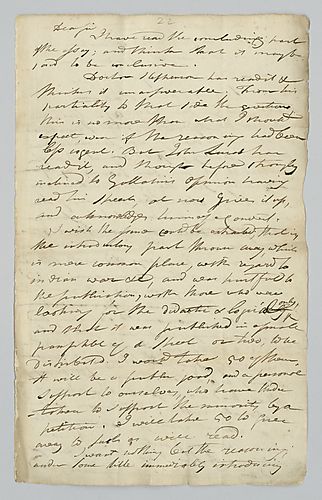 22
Dear Sir
I have read the concluding part
of the essay; and think that it may be
said to be conclusive.
Doctor Stephenson has read it &
thinks it unanswerable. From his
partiality to that side the question
this is no more than what I should
expect even if the reasoning had been
less cogent. But John Lucas has
read it, and though before strongly
inclined to Gallatin's opinion having
read his speech, at now gives it up,
and acknowledges himself a convert.
I wish the same could be extended that is
the introductory part thrown away which
is more common place, with regard to
indian war &c, and was painful to
the publication, with those who were
looking for the didactic & logical
and that it was published in a small
pamphlet of a sheet or two, to be
distributed I would take 50 of them.
It will be a public good, and a personal
support to ourselves, who have under
taken to support the minority by a
petition. I will take 50 to give
away to such as will read.
I want nothing but the reasoning
under some title immediately introducing